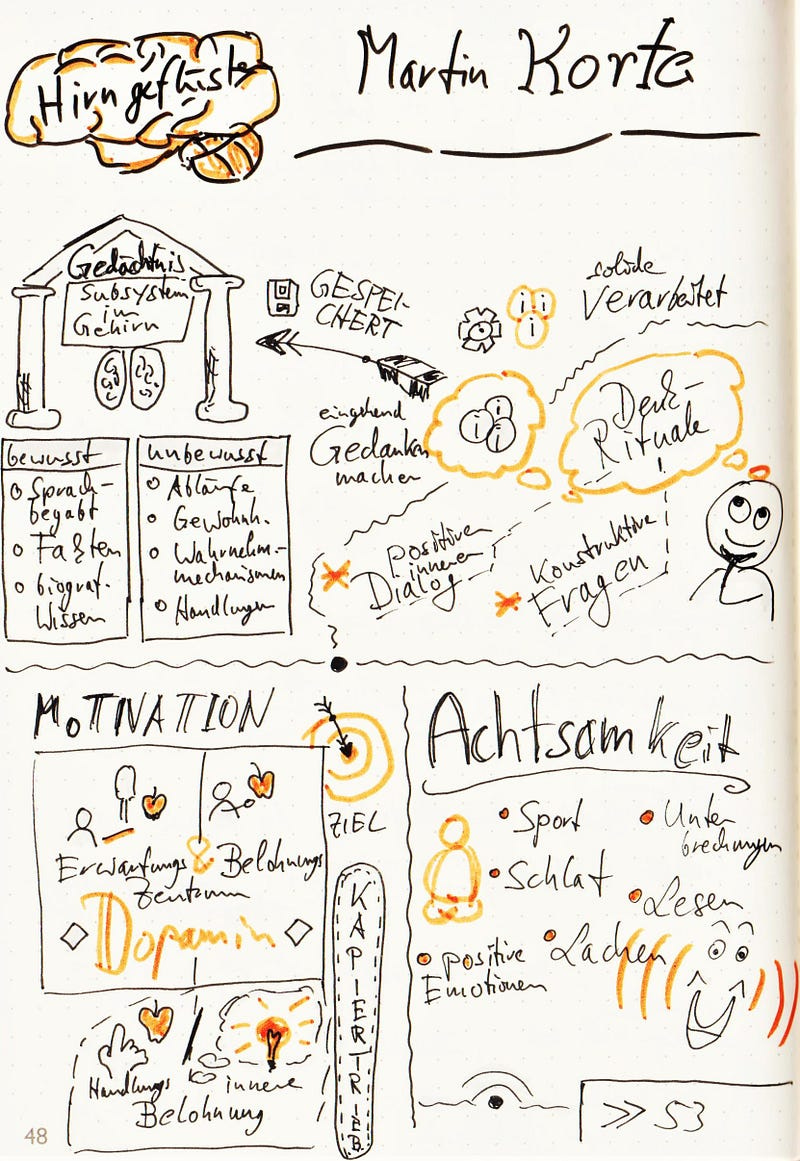 Hirngeflüster
Martin Korte
Gedächtnis
Subsystem
im
Gehirn
GESPEI-
CHERT
solide
Verarbeitet
i i
i
eingehend
Gedanken
machen
i i
i
Denk-
Rituale
bewusst
Sprach-
begabt
Fakten
biograf.
Wissen
unbewusst
Abläufe
Gewohnh.
Wahrnehm.-
mechanismen
Handlungen
positiven
inneren
Dialog
Konstruktive
Fragen
MOTIVATION
ZIEL
Erwartungs & Belohnungs
Zentrum
Dopamin
Handlungs / innere
Belohnung
KAPIERTRIEB
Achtsamkeit
Sport
Unter
brechungen
Schlaf
Lesen
positive
Emotionen
Lachen
>> 53
48